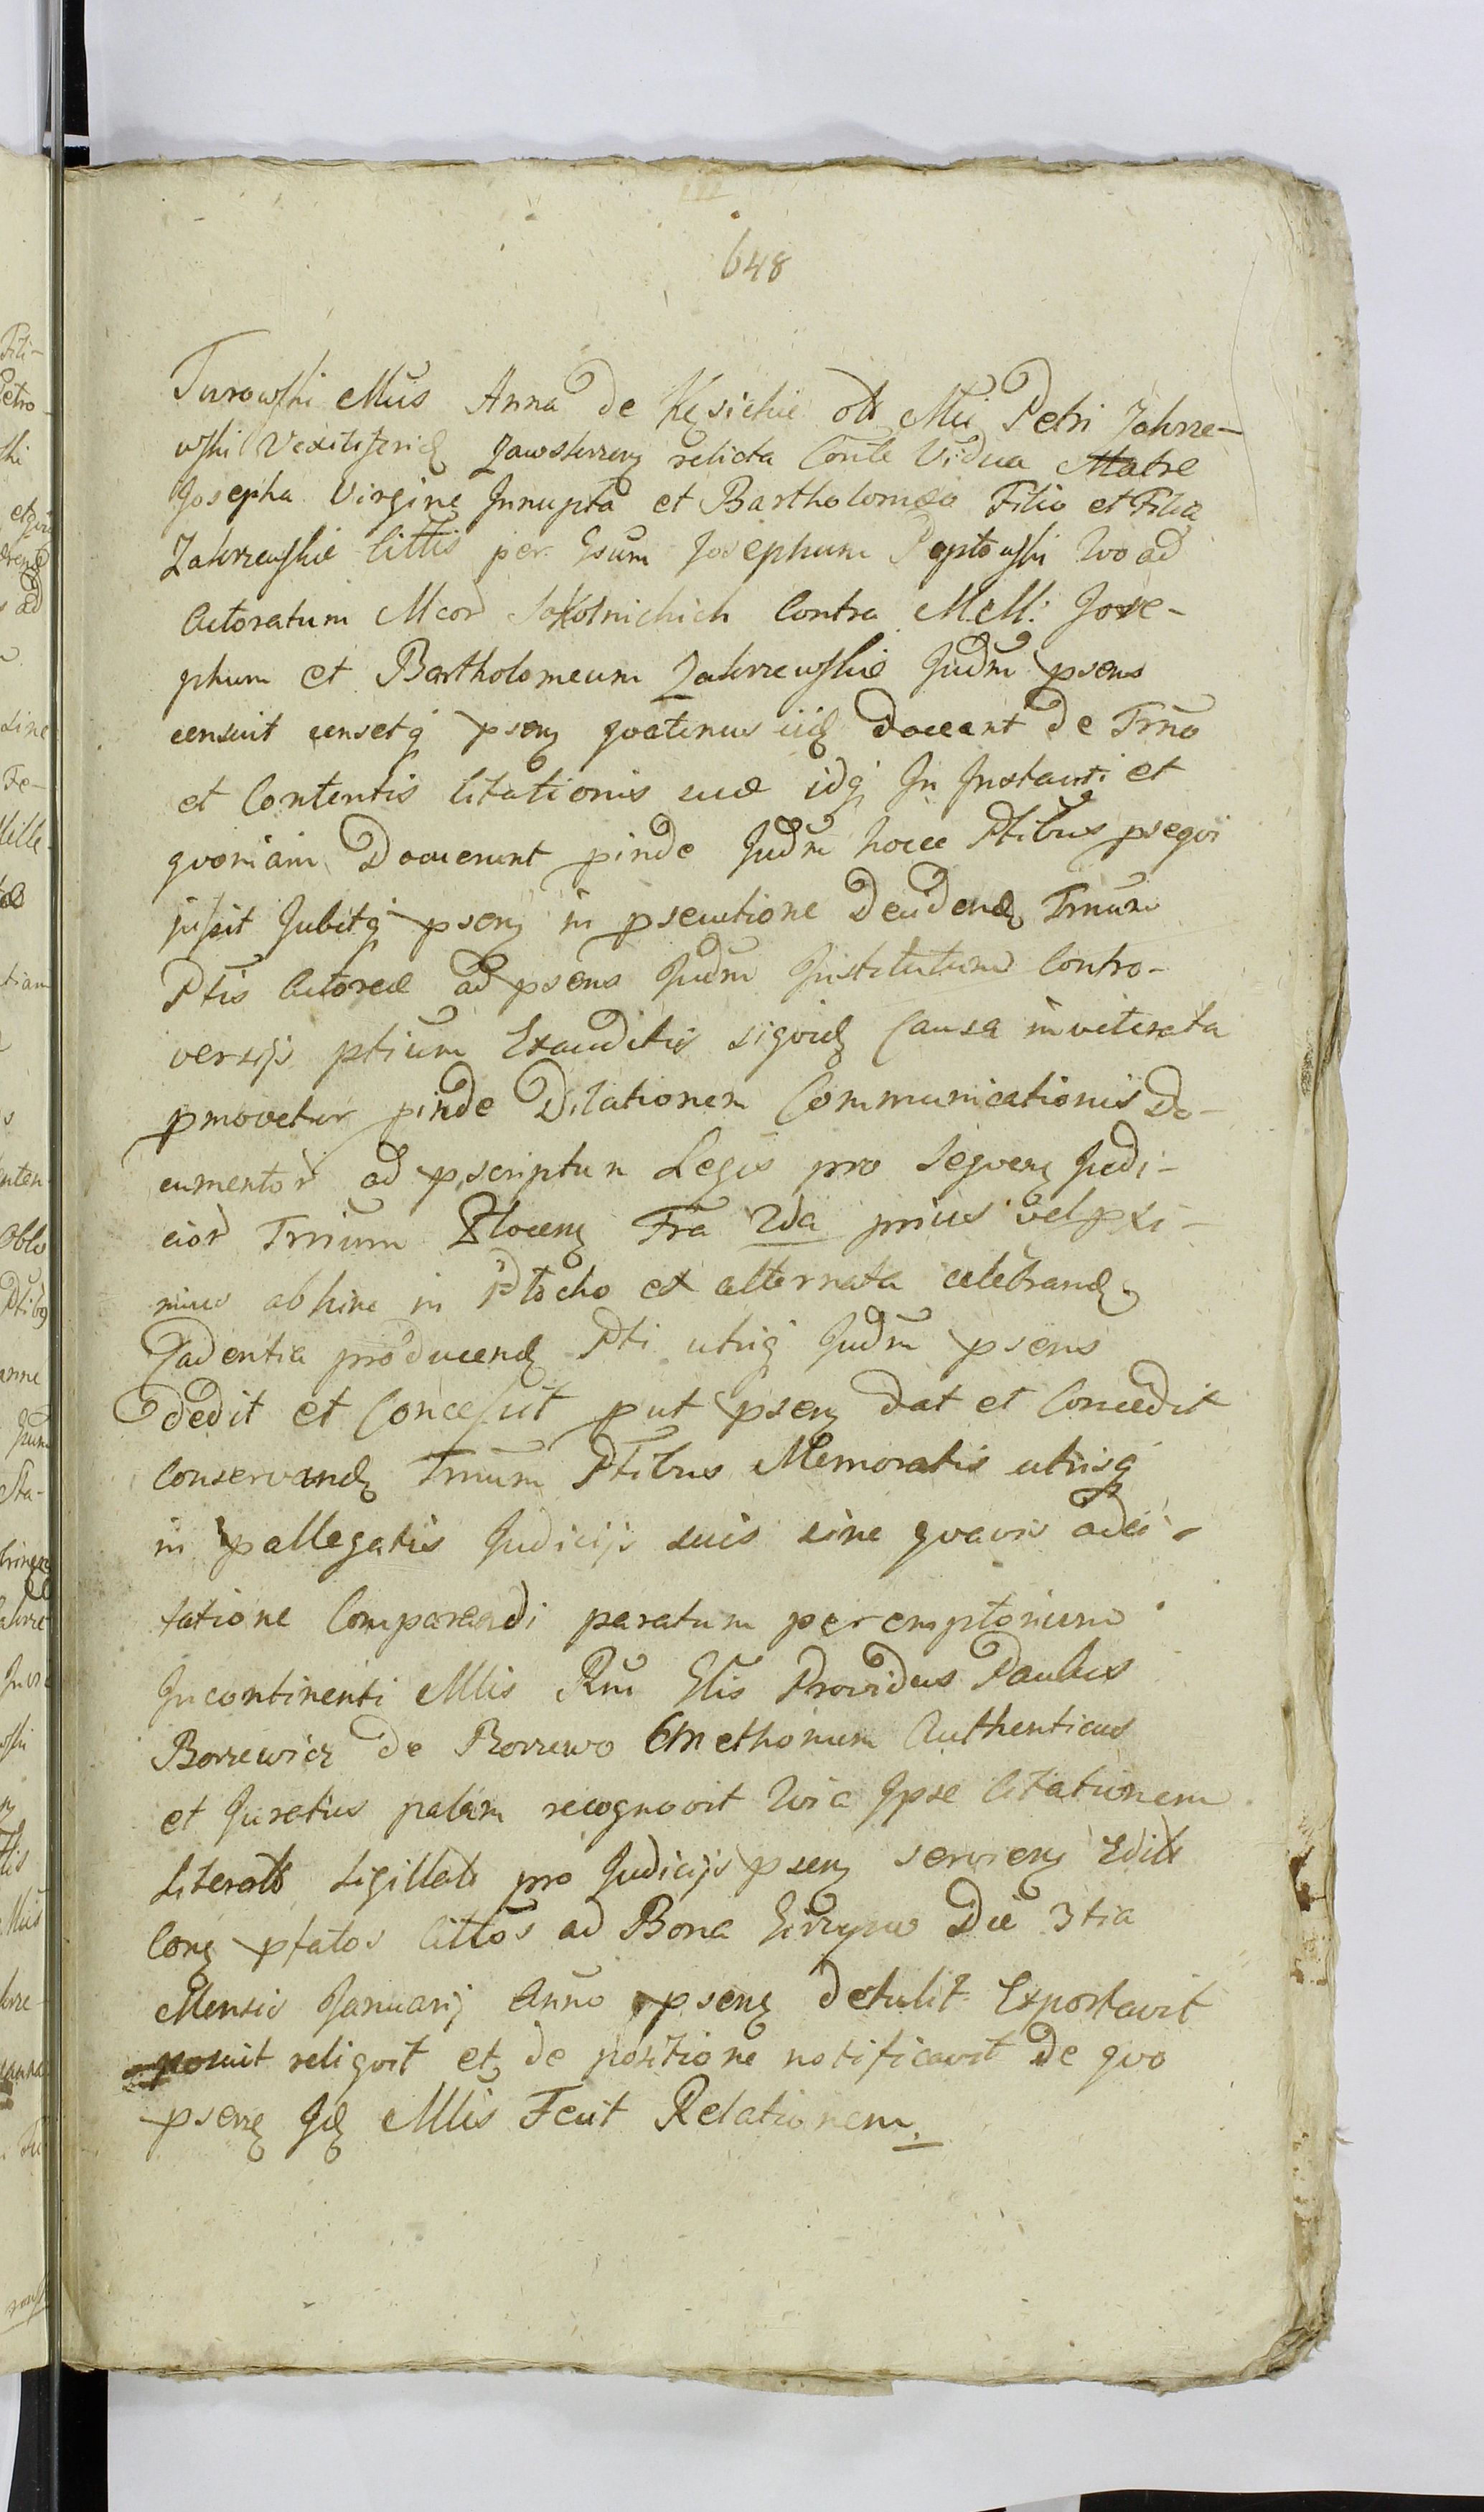 648
Turowski Mus Anna de Kęsickie olt Mti Petri Zakrze-
wski Vexiliferid Zawskrzen relicta Conte Vidua Matre
Josepha Virgine Innupta et Bartholomæo Filio et Filia
Zakrzewskie Cittis per Gsum Josephum vo ad
Actoratum Mcor Sokolnickich Contra M.M: Jose-
phum et Bartholomeum Zakrzewskie Judm psens
censuit censetq psenz quatenus iid doceant de Trno
et Contentis Citationis suæ idq In Instanti et
quoniam Docuerunt pinde Judm hocce Ptibus psequi
jussit Jubetq psenz in psecutione Decidend Trnum
Ptis Actoreæ ad psens Judm Institutum Contro-
versijs ptium Exauditis siquid Causa inveterata
pmovetur pinde Dilationem Communicationis Do-
cumentor ad pscriptum Legis pro Sequenz Judi-
cior Trrium Plocenz Fra 2da prius vel pxi-
mius abhinc in Plocko ex alternata celebrand
Cadentia producend Pti utriq Judm psens
dedit et Concessit put psenz dat et Concedit
Conservand Trnum Ptibus Memoratis utrisq
in pallegatis Judicijs suis sine quavis adci-
tatione Comparendi paratum peremptorium
Incontinenti Mlis Rni Glis Providus Paulus
Borzewicz de Borzewo Cmethonum Authenticus
et Juratus palam recognovit Quia Ipse Citationem
Literalt Sigillalt pro Judicijs psenz servienz Edilt
Conz pfatos Cittos ad Bona Die 3tia
Mensis Januarij Anno psenz detulit Exportavit
posuit reliquit et de positione notificavit De quo
psenz Id Mlis Fecit Relationem.